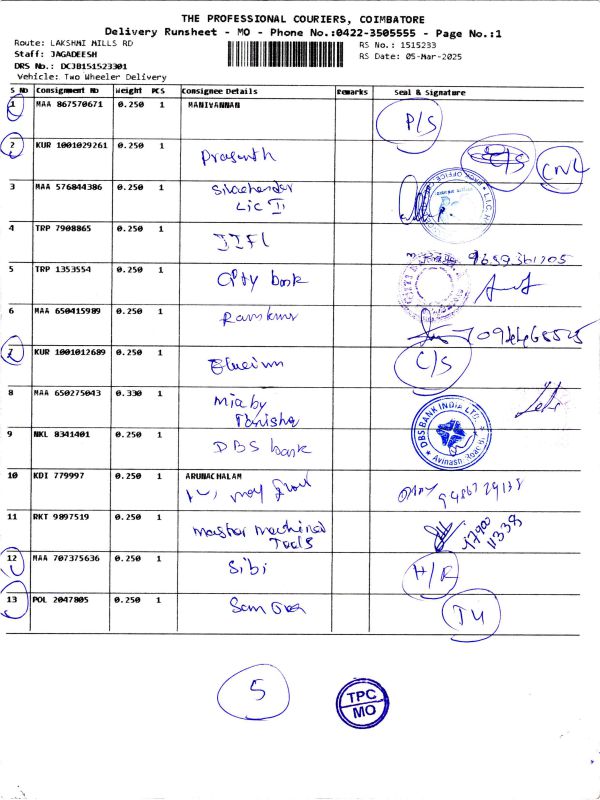 THE PROFESSIONAL COURIERS, COIMBATORE
Delivery Runsheet - MO - Phone No.:0422-3505555 - Page No.:1
Route: LAKSHMI MILLS RD
RS No.: 1515233
Staff: JAGADEESH
RS Date: 05-Mar-2025
DRS No.: DCJB151523301
Vehicle: Two Wheeler Delivery
S No Consignment No Weight PCS Consignee Details Remarks Seal & Signature
1 MAA 867570671 0.250 1 MANIVANNAN P/S
2 KUR 1001029261 0.250 1 Prasanth C/S CNL
3 MAA 576844386 0.250 1
LIC II
4 TRP 7908865 0.250 1 IIFL
5 TRP 1353554 0.250 1 City bank
6 MAA 650415989 0.250 1 Ramkumar
7 KUR 1001012689 0.250 1 C/S
8 MAA 650275043 0.330 1 Mia by
Tanishq
DBS BANK INDIA LTD.
Avinashi Road
9 NKL 8341401 0.250 1 DBS bank
10 KDI 779997 0.250 1 ARUNACHALAM
11 RKT 9897519 0.250 1 Master
Tools
47900
11338
12 MAA 707375636 0.250 1 Sibi H/R
13 POL 2047805 0.250 1
5
TPC
MO